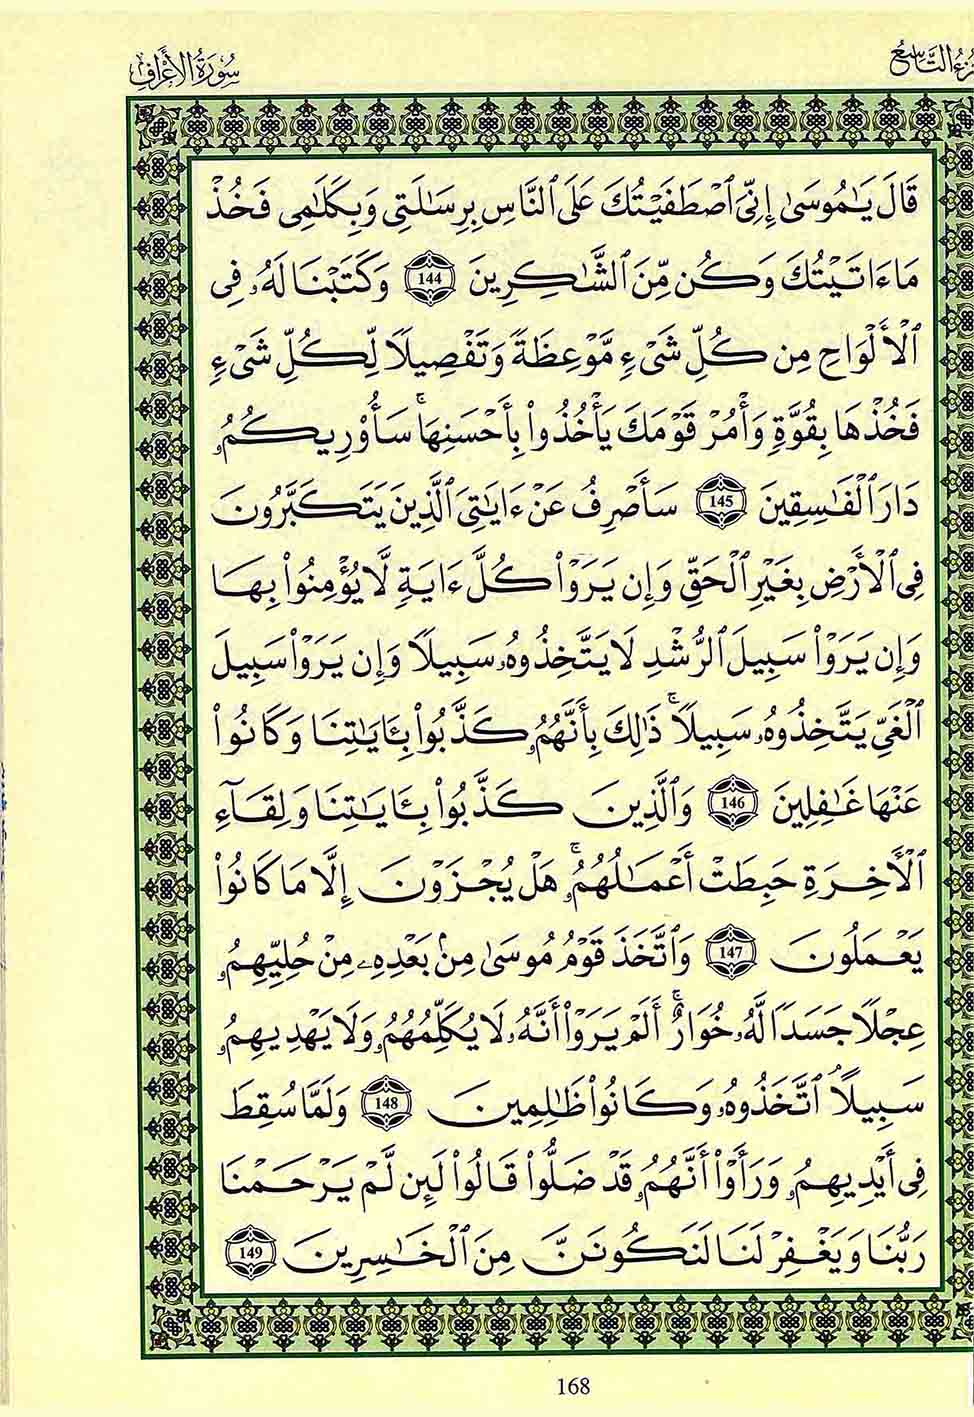 سُورَةُ الأَعْرَافِ
الجُزْءُ التَّاسِعُ
قَالَ يَٰمُوسَىٰ إِنِّيَ ٱصْطَفَيْتُكَ عَلَى ٱلنَّاسِ بِرِسَٰلَتِي وَبِكَلَٰمِي فَخُذْ
مَا ءَاتَيْتُكَ وَكُن مِّنَ ٱلشَّٰكِرِينَ 144 وَكَتَبْنَا لَهُۥ فِي
ٱلْأَلْوَاحِ مِن كُلِّ شَيْءٍ مَّوْعِظَةً وَتَفْصِيلًا لِّكُلِّ شَيْءٍ
فَخُذْهَا بِقُوَّةٍ وَأْمُرْ قَوْمَكَ يَأْخُذُوا۟ بِأَحْسَنِهَا ۚ سَأُو۟رِيكُمُۥ
دَارَ ٱلْفَٰسِقِينَ 145 سَأَصْرِفُ عَنْ ءَايَٰتِيَ ٱلَّذِينَ يَتَكَبَّرُونَ
فِي ٱلْأَرْضِ بِغَيْرِ ٱلْحَقِّ وَإِن يَرَوْا۟ كُلَّ ءَايَةٍ لَّا يُؤْمِنُوا۟ بِهَا
وَإِن يَرَوْا۟ سَبِيلَ ٱلرُّشْدِ لَا يَتَّخِذُوهُۥ سَبِيلًا وَإِن يَرَوْا۟ سَبِيلَ
ٱلْغَيِّ يَتَّخِذُوهُۥ سَبِيلًا ۚ ذَٰلِكَ بِأَنَّهُمُۥ كَذَّبُوا۟ بِـَٔايَٰتِنَا وَكَانُوا۟
عَنْهَا غَٰفِلِينَ 146 وَٱلَّذِينَ كَذَّبُوا۟ بِـَٔايَٰتِنَا وَلِقَآءِ
ٱلْأَخِرَةِ حَبِطَتْ أَعْمَٰلُهُمُۥ ۚ هَلْ يُجْزَوْنَ إِلَّا مَا كَانُوا۟
يَعْمَلُونَ 147 وَٱتَّخَذَ قَوْمُ مُوسَىٰ مِنۢ بَعْدِهِۦ مِنْ حُلِيِّهِمُۥ
عِجْلًا جَسَدًا لَّهُۥ خُوَارٌ ۚ أَلَمْ يَرَوْا۟ أَنَّهُۥ لَا يُكَلِّمُهُمُۥ وَلَا يَهْدِيهِمُۥ
سَبِيلًا ۘ ٱتَّخَذُوهُۥ وَكَانُوا۟ ظَٰلِمِينَ 148 وَلَمَّا سُقِطَ
فِي أَيْدِيهِمُۥ وَرَأَوْا۟ أَنَّهُمُۥ قَدْ ضَلُّوا۟ قَالُوا۟ لَئِن لَّمْ يَرْحَمْنَا
رَبُّنَا وَيَغْفِرْ لَنَا لَنَكُونَنَّ مِنَ ٱلْخَٰسِرِينَ 149
168